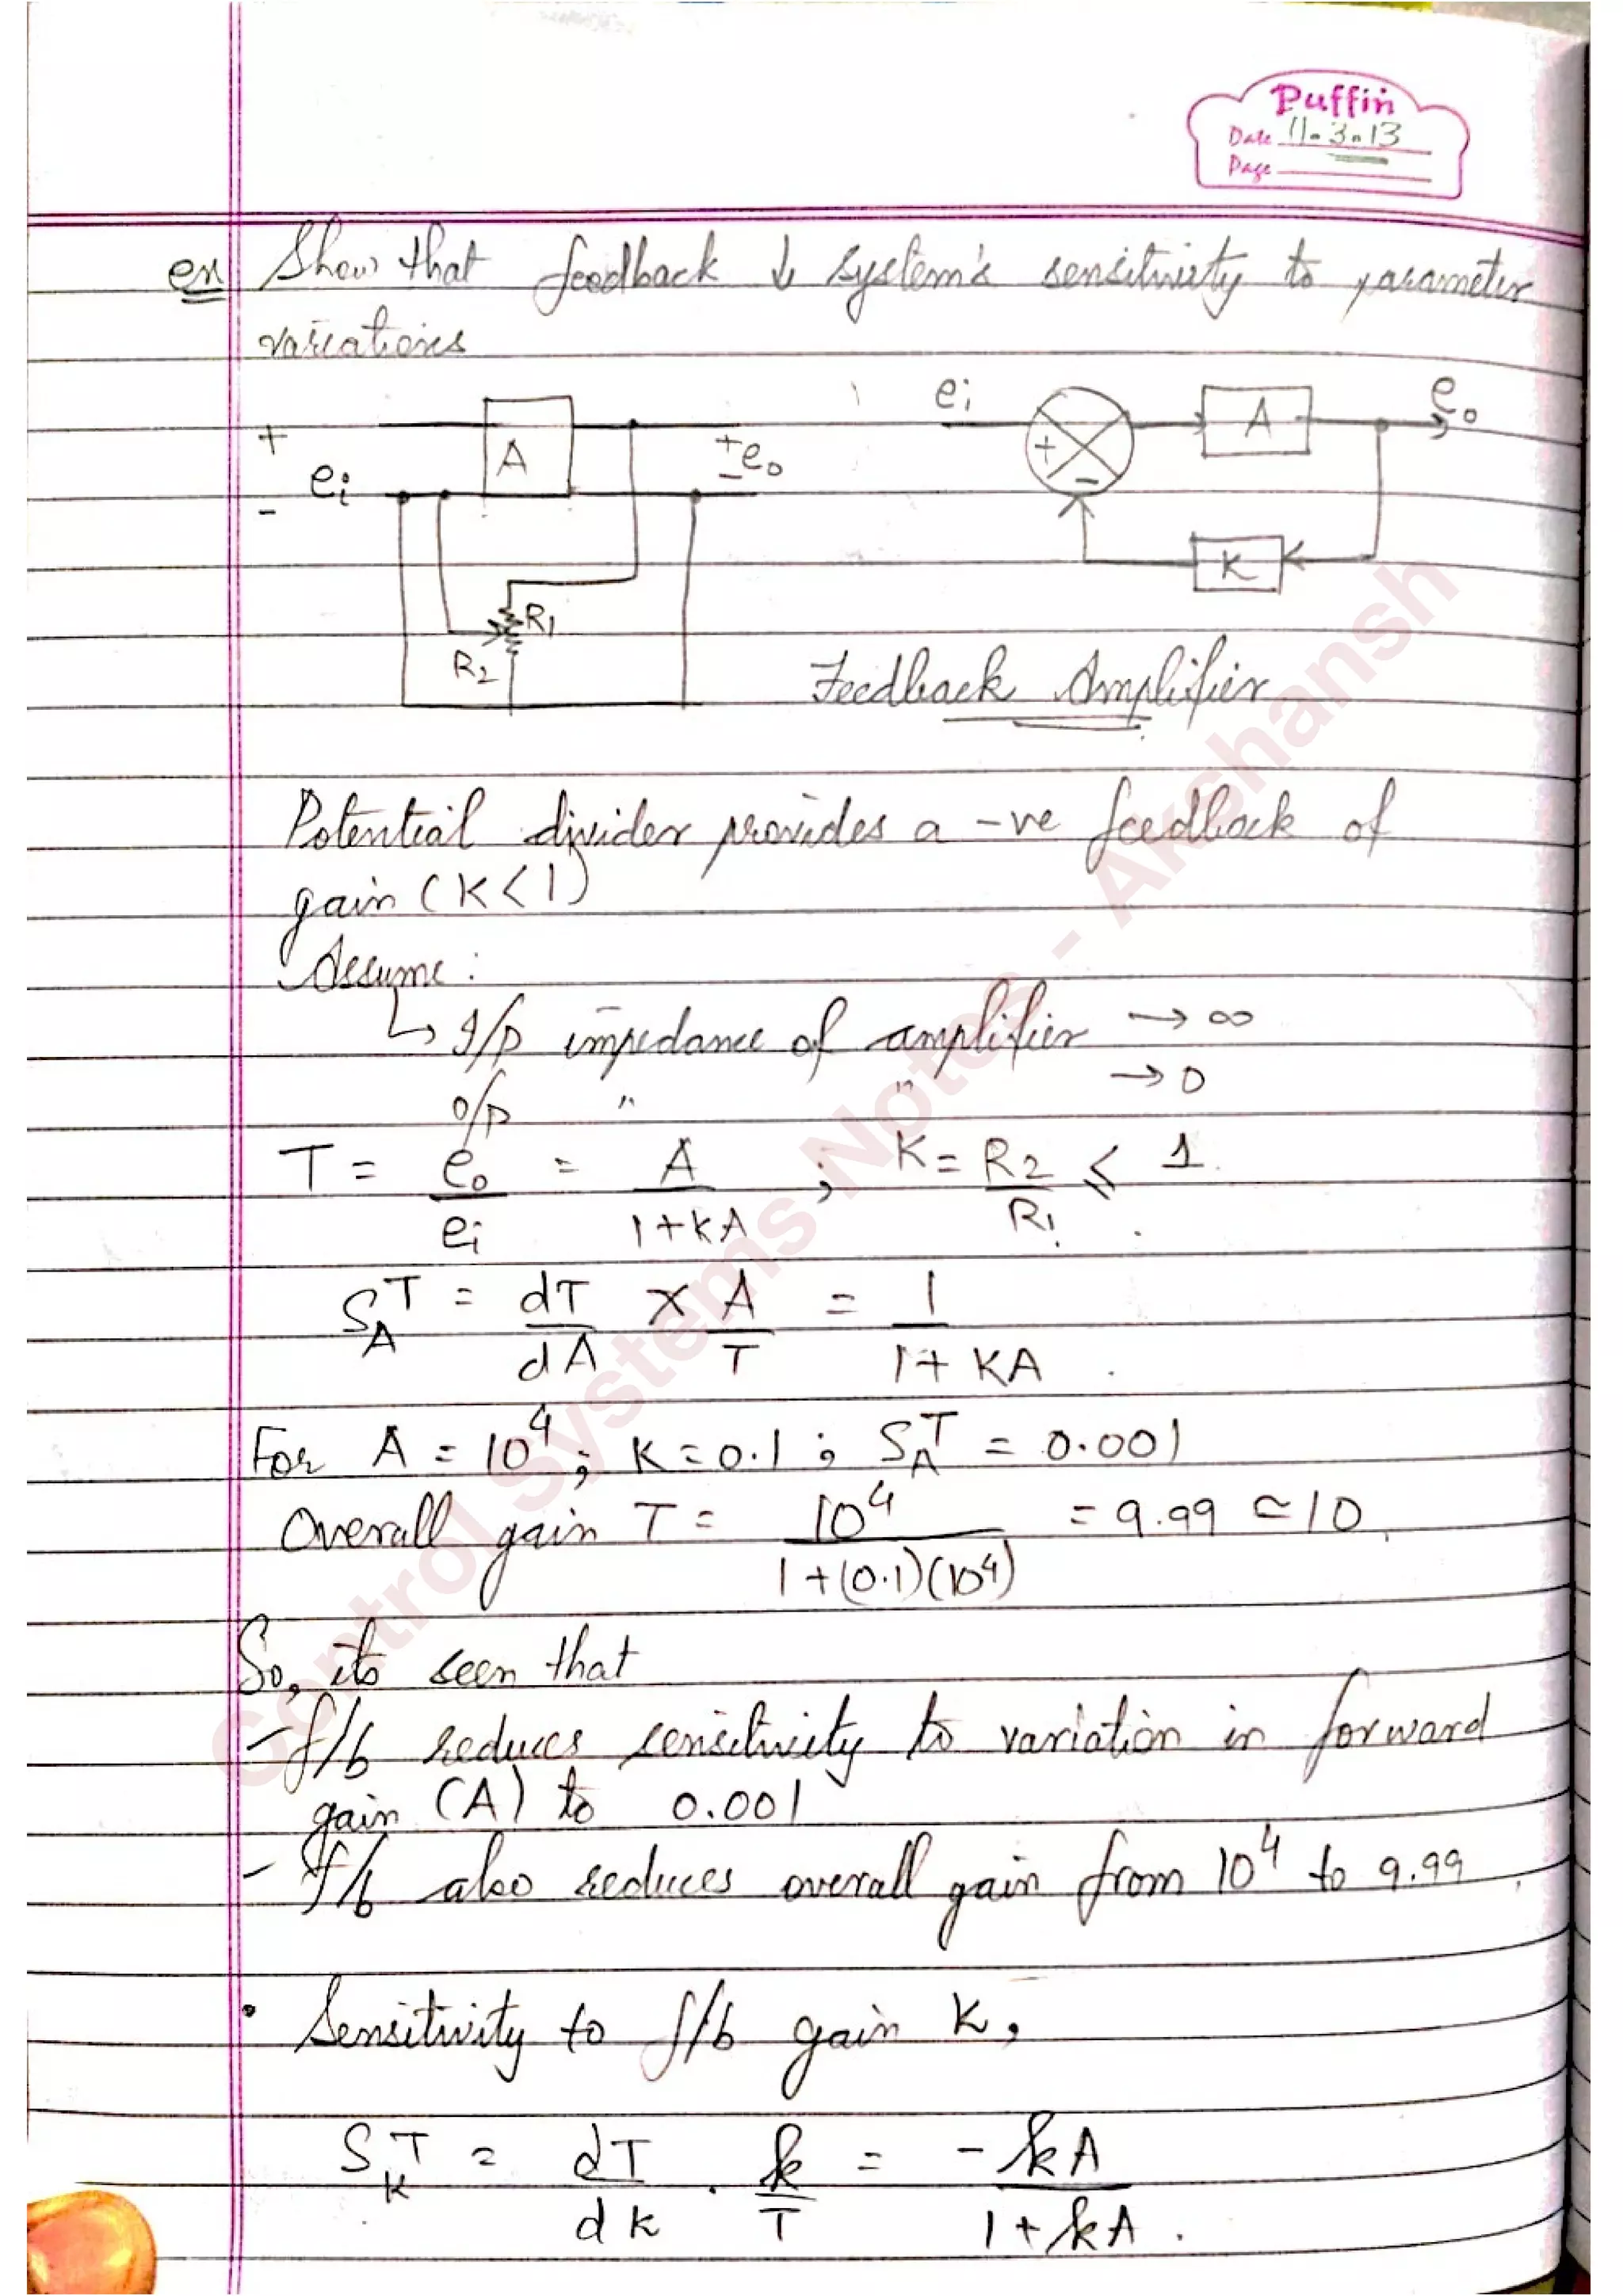 Puffin
Date 11.3.13
Page
ex Show that feedback ↓ system's sensitivity to parameter
variations
+ ei - A + eo -
R1
R2
ei + - A eo
K
Feedback Amplifier
Potential divider provides a -ve feedback of
gain (K<1)
Assume:
↳ I/p impedance of amplifier → ∞
o/p " " → 0
T = eo/ei = A/(1+KA) ; K = R2/R1 ≤ 1.
S_A^T = dT/dA × A/T = 1/(1+KA).
For A = 10^4 ; K = 0.1 ; S_A^T = 0.001
Overall gain T = 10^4/(1+(0.1)(10^4)) = 9.99 ≃ 10.
So, its seen that
- f/b reduces sensitivity to variation in forward
gain (A) to 0.001
- f/b also reduces overall gain from 10^4 to 9.99.
• Sensitivity to f/b gain K,
S_K^T = dT/dk . k/T = -kA/(1+kA).
Control Systems Notes - Akshansh